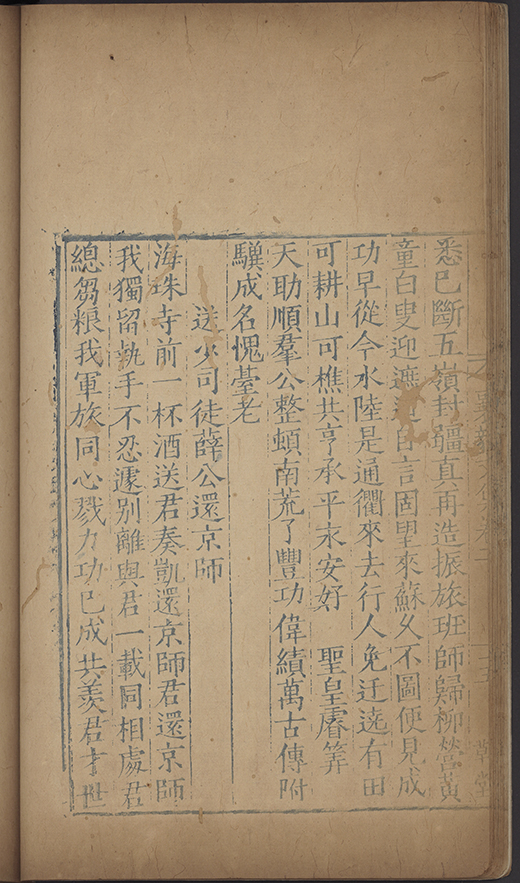 悉已斷五嶺封疆真再造振旅班師歸柳營黃
童白叟迎遮道自言固望來蘇久不圖便見成
功早從今水陸是通衢來去行人免迂遶有田
可耕山可樵共享承平永安好 聖皇睿筭
天助順羣公整頓南荒了豐功偉績萬古傳附
驥成名愧臺老
送少司徒薛公還京師
海珠寺前一杯酒送君奏凱還京師君還京師
我獨留執手不忍遽別離與君一載同相處君
總芻粮我軍旅同心戮力功已成共羨君才世